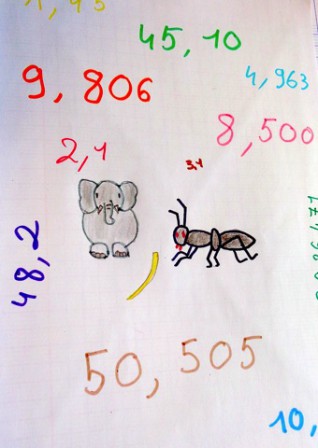 45,10
9,806
4,963
8,500
2,1
3,4
48,2
50,505
10,